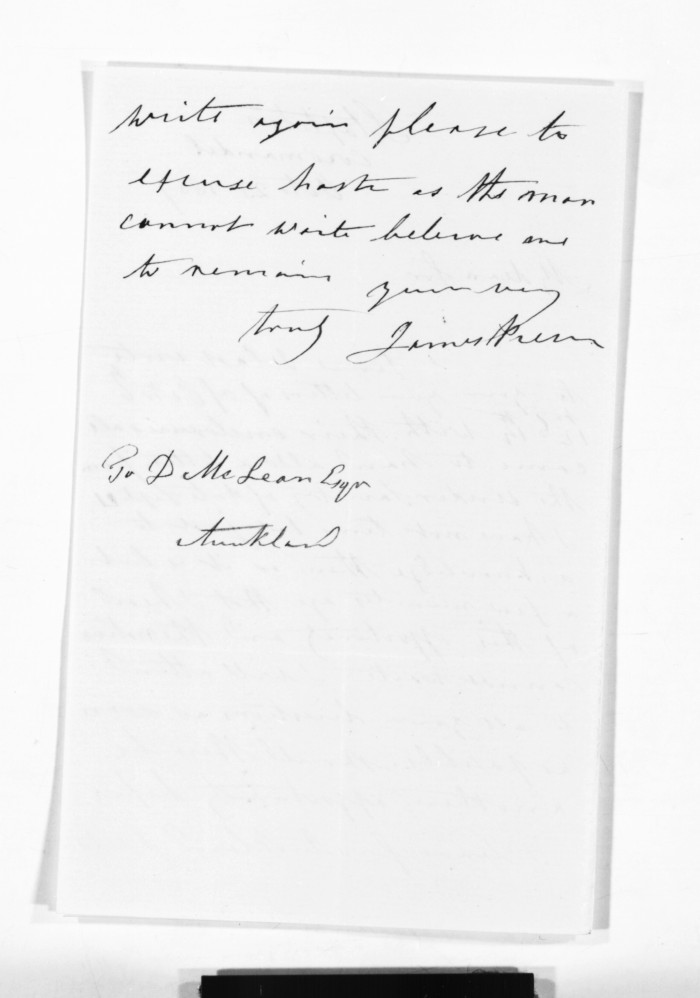 write again please to
excuse haste as the man
cannot wait beleive me
to remain your very
truly James Preece
To D McLean Esqr
Auckland